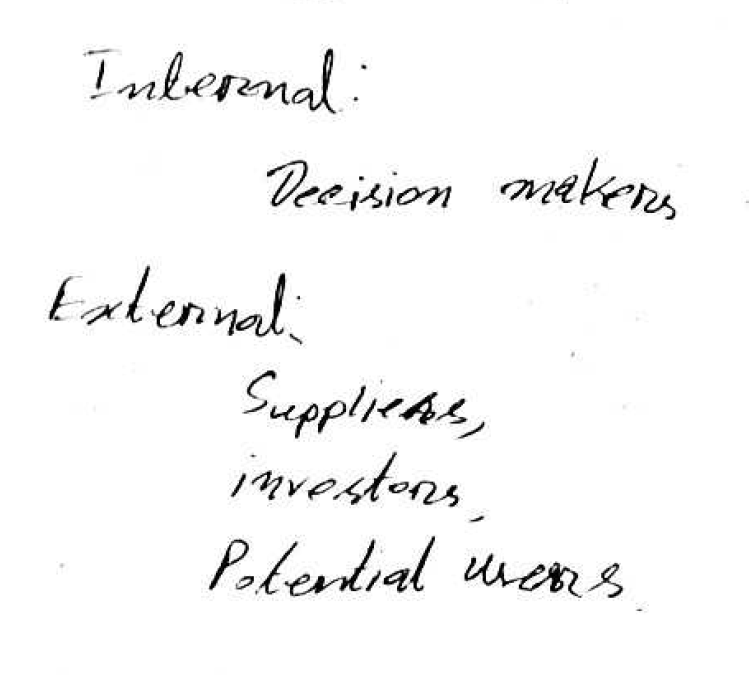 Internal:
Decision makers
External:
Suppliers,
investors,
Potential users.